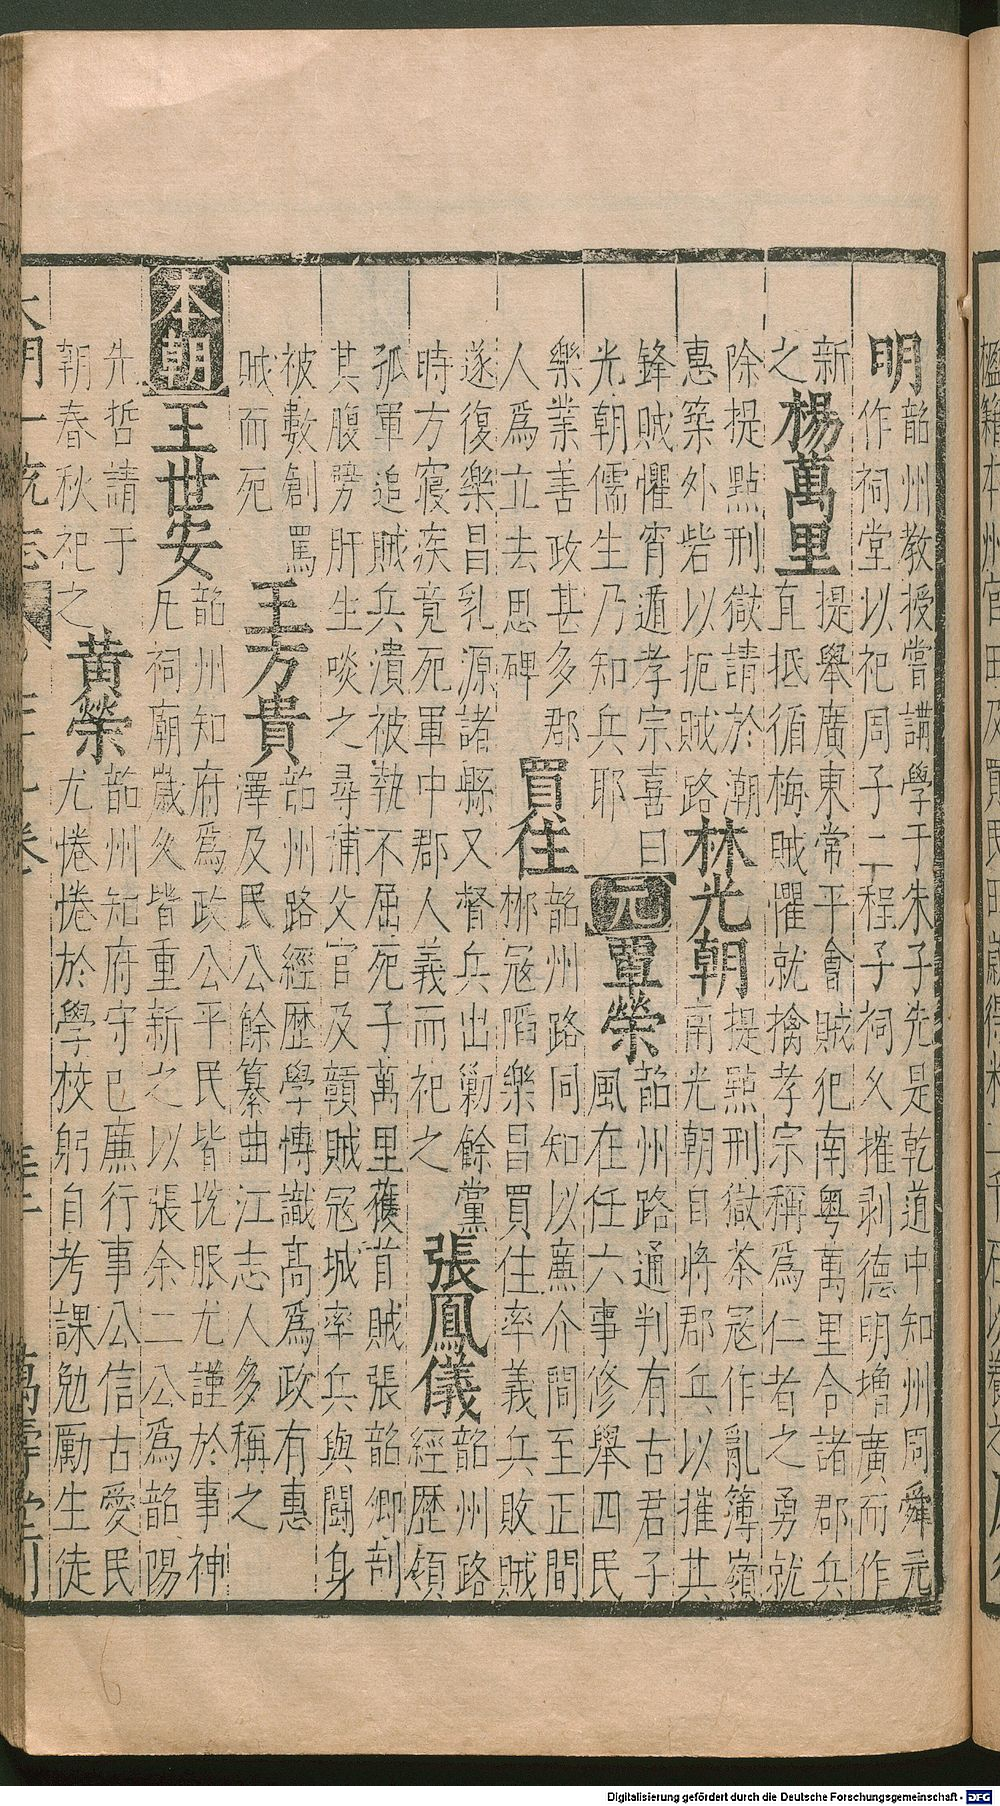 明
韶州教授嘗講學于朱子先是乾道中知州周舜元
作祠堂以祀周子二程子祠久摧剥德明增廣而作
新
之
楊萬里
提舉廣東常平會賊犯南粤萬里合諸郡兵
直抵循梅賊懼就擒孝宗稱爲仁者之勇就
除提點刑獄請於潮
惠築外砦以扼賊路
林光朝
提點刑獄茶冦作亂簿嶺
南光朝自將郡兵以摧其
鋒賊懼宵遁孝宗喜曰
光朝儒生乃知兵耶
元
單榮
韶州路通判有古君子
風在任六事修舉四民
樂業善政甚多郡
人爲立去思碑
買住
韶州路同知以廉介間至正間
郴冦䧟樂昌買住率義兵敗賊
遂復樂昌乳源諸縣又督兵出勦餘黨
時方寢疾竟死軍中郡人義而祀之
張鳳儀
韶州路
經歴領
孤軍追賊兵潰被執不屈死子萬里獲首賊張韶卿剖
其腹劈肝生啖之尋浦父官及贑賊冦城率兵與鬪身
被數創罵
賊而死
王方貴
韶州路經歴學愽識高爲政有惠
澤及民公餘纂曲江志人多稱之
本朝
王世安
韶州知府爲政公平民皆恱服尤謹於事神
凡祠廟歲久皆重新之以張余二公爲韶陽
先哲請于
朝春秋祀之
黄榮
韶州知府守已廉行事公信古愛民
尤惓惓於學校躬自考課勉勵生徒
大明一統志
萬壽堂刊
Digitalisierung gefördert durch die Deutsche Forschungsgemeinschaft - DFG